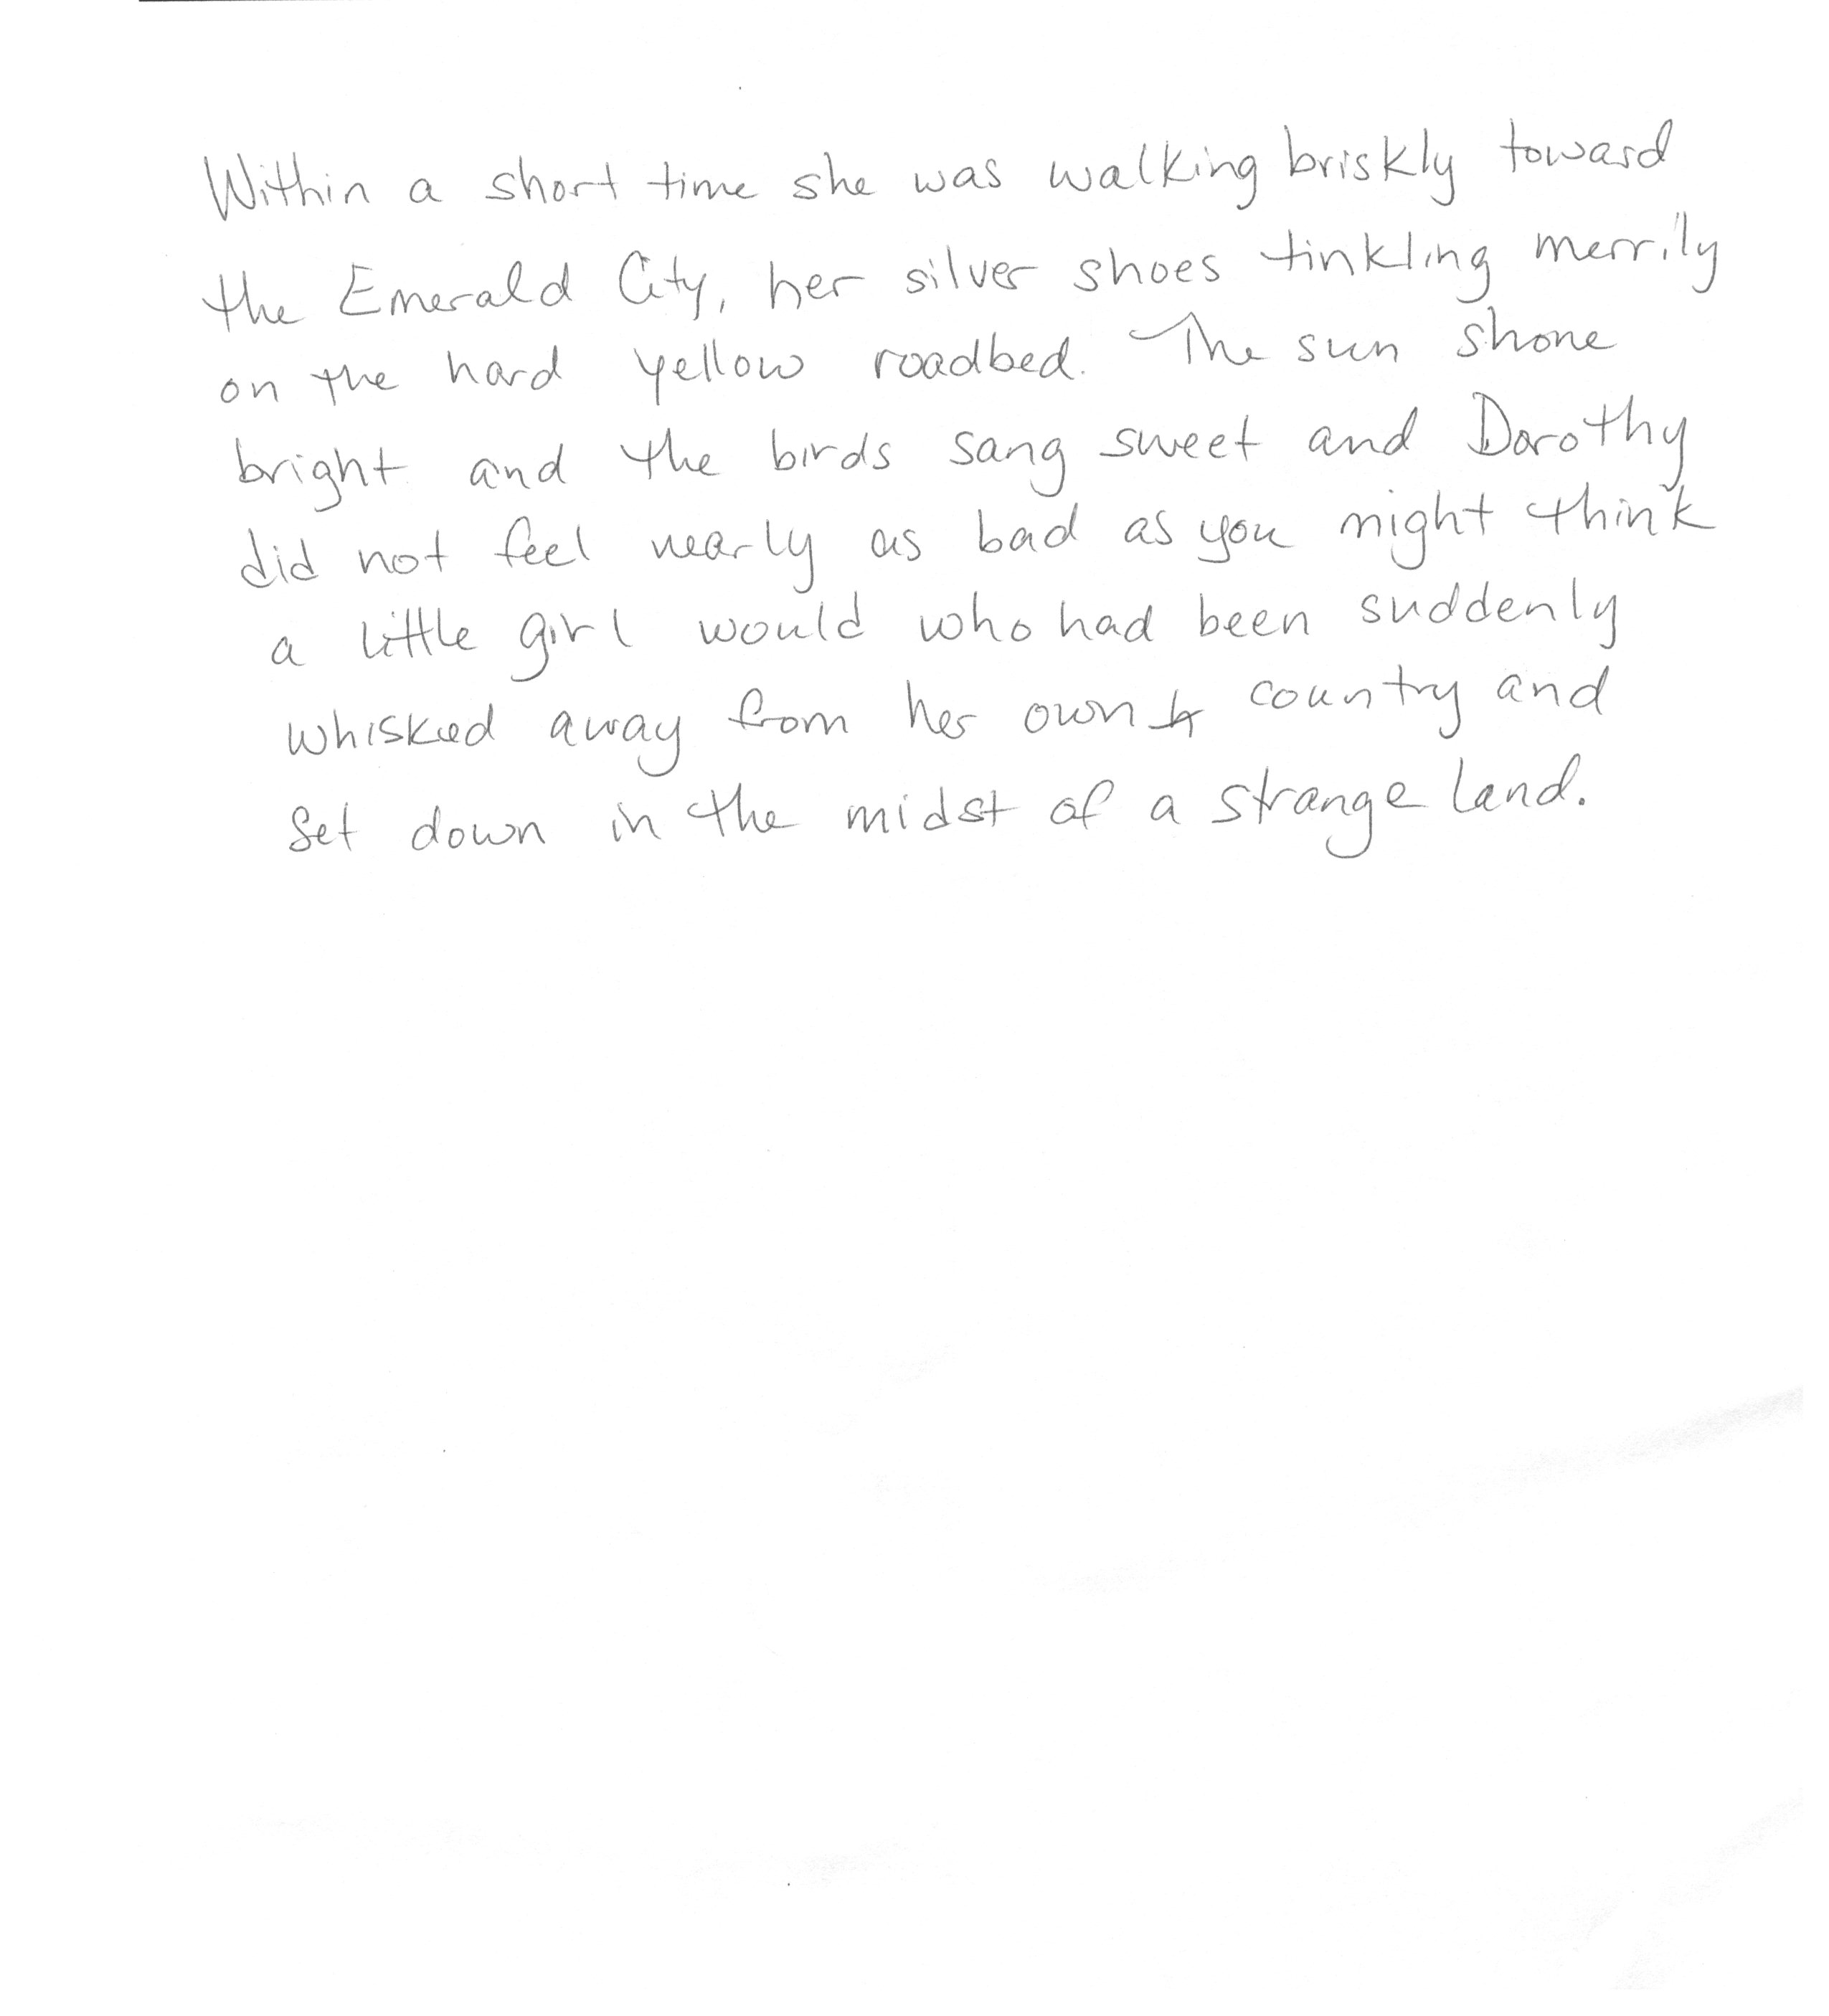 Within a short time she was walking briskly toward
the Emerald City, her silver shoes tinkling merrily
on the hard yellow roadbed. The sun shone
bright and the birds sang sweet and Dorothy
did not feel nearly as bad as you might think
a little girl would who had been suddenly
whisked away from her own country and
set down in the midst of a strange land.